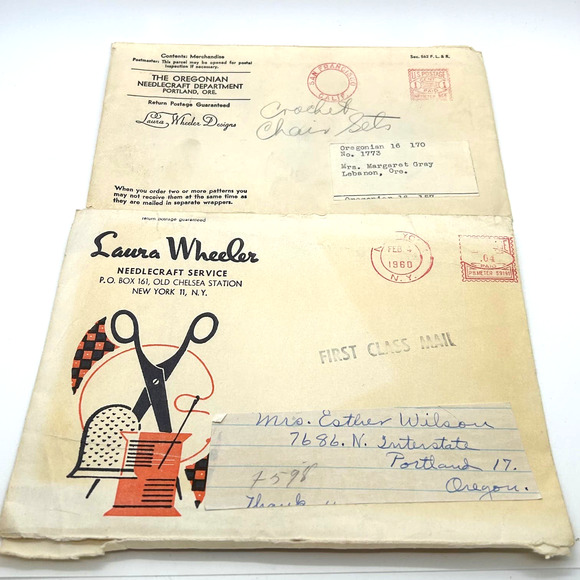 Contents: Merchandise
Postmaster: This parcel may be opened for postal
inspection if necessary.
THE OREGONIAN
NEEDLECRAFT DEPARTMENT
PORTLAND, ORE.
Return Postage Guaranteed
Laura Wheeler Designs
SAN FRANCISCO
CALIF.
Sec. 562 P. L. & R.
U.S. POSTAGE
PAID
Crochet
Chair Sets
Oregonian 16 170
No. 1773
Mrs. Margaret Gray
Lebanon, Ore.
When you order two or more patterns you
may not receive them at the same time as
they are mailed in separate wrappers.
return postage guaranteed
Laura Wheeler
NEEDLECRAFT SERVICE
P.O. BOX 161, OLD CHELSEA STATION
NEW YORK 11, N.Y.
FEB
1960
N.Y.
.04
FIRST CLASS MAIL
Mrs. Esther Wilson
7686. N. Interstate
Portland 17.
Oregon.
7598
Thank